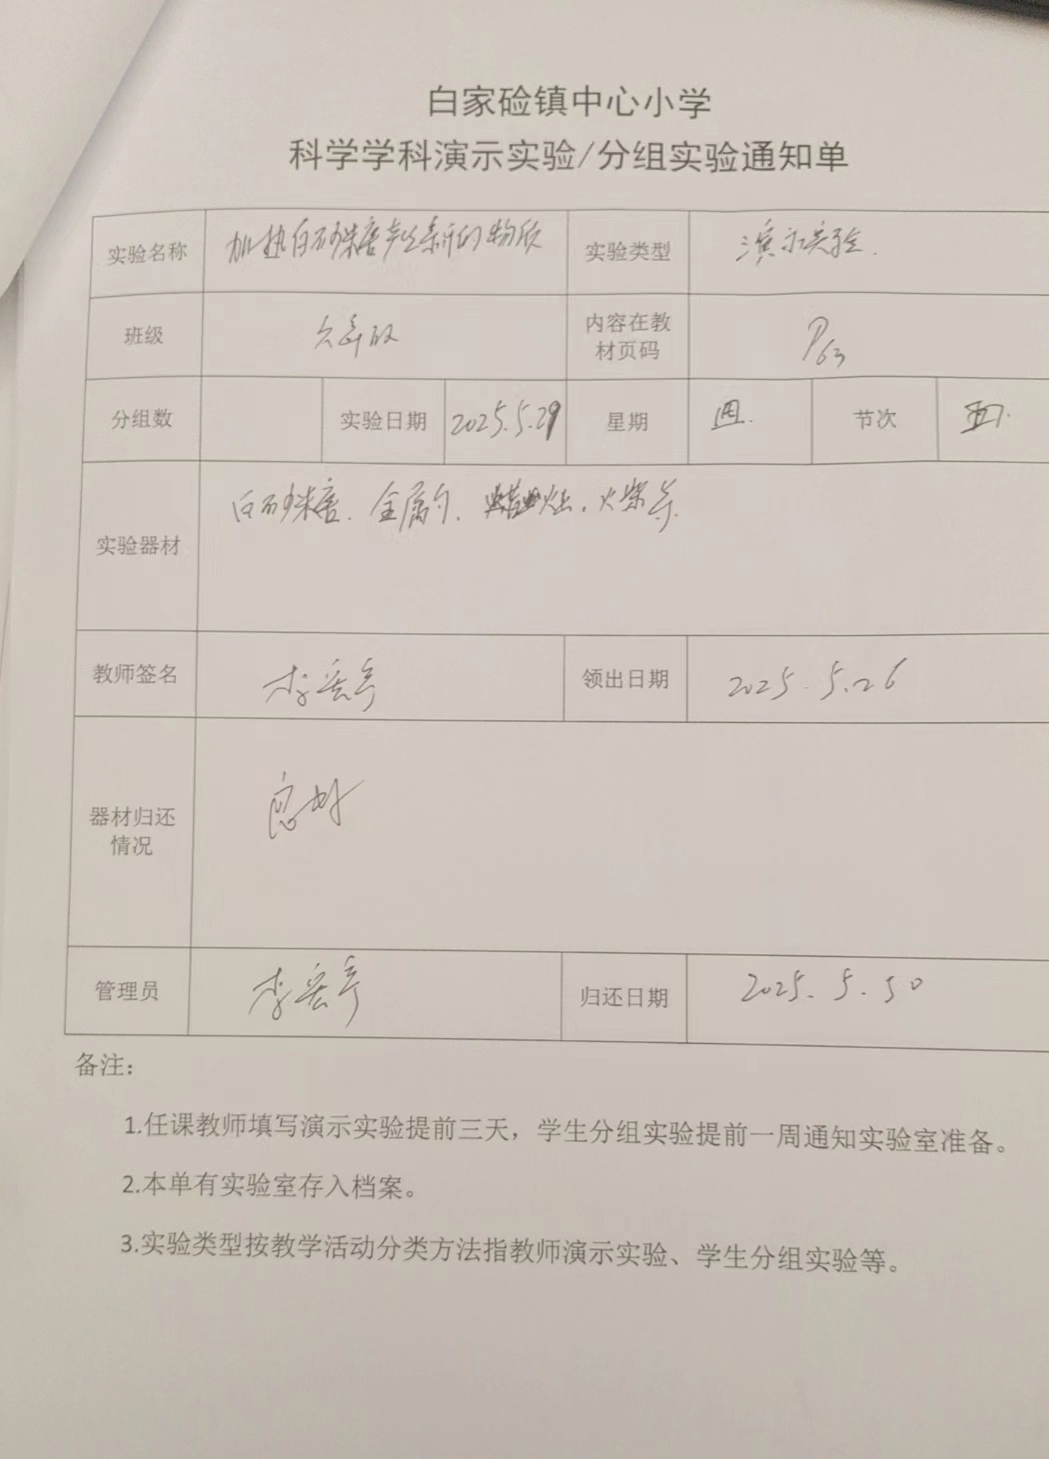 白家硷镇中心小学
科学学科演示实验/分组实验通知单
实验名称 加热白砂糖产生新的物质 实验类型 演示实验.
班级 六年级 内容在教
材页码 P63
分组数 实验日期 2025.5.29 星期 四. 节次
实验器材 白砂糖、金属勺、蜡烛、火柴等.
教师签名 领出日期 2025.5.26
器材归还
情况 良好
管理员 归还日期 2025.5.30
备注：
1.任课教师填写演示实验提前三天，学生分组实验提前一周通知实验室准备。
2.本单有实验室存入档案。
3.实验类型按教学活动分类方法指教师演示实验、学生分组实验等。